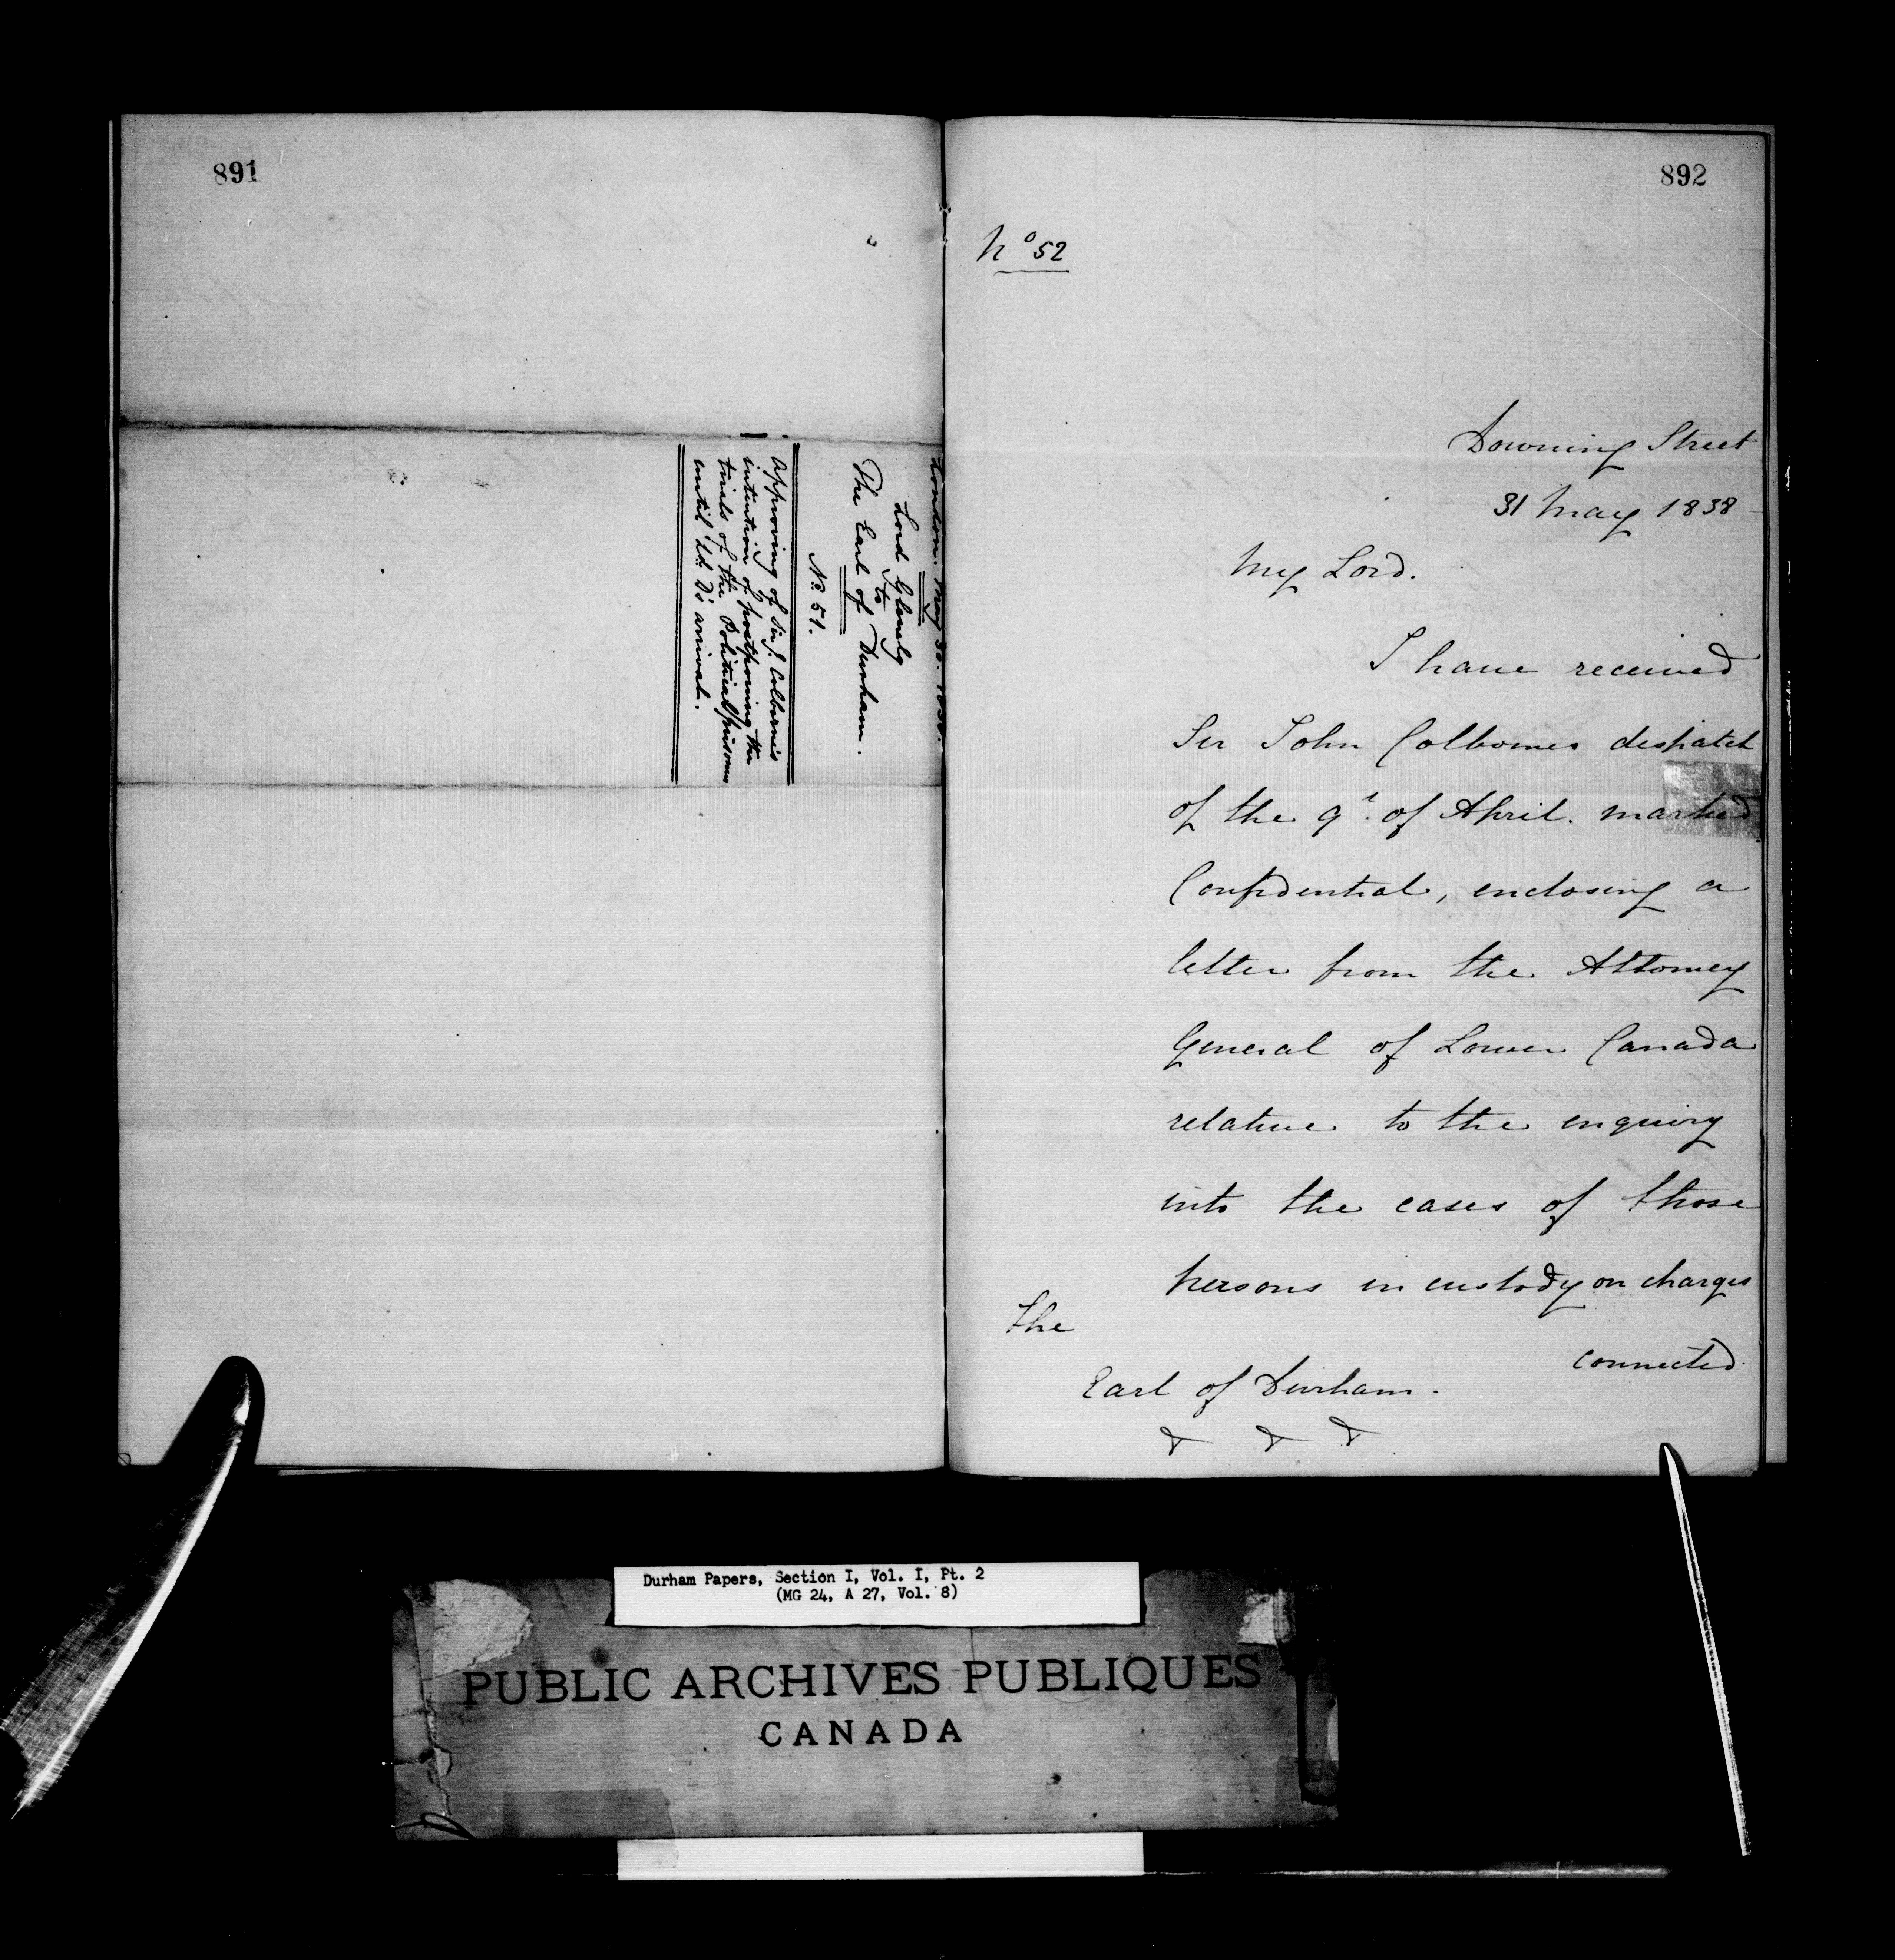 891
London. May 30. 1838.
Lord Glenelg
to
The Earl of Durham.
No. 51.
Approving of Sir J. Colborne's
intention of postponing the
trials of the Political prisoners
until Ld. D's arrival.
892
No 52
Downing Street
31 May 1838
My Lord.
I have received
Sir John Colbornes despatch
of the 9t. of April. marked
Confidential, enclosing a
letter from the Attorney
General of Lower Canada
relative to the enquiry
into the cases of those
persons in custody on charges
connected
The
Earl of Durham.
& & &
Durham Papers, Section I, Vol. I, Pt. 2
(MG 24, A 27, Vol. 8)
PUBLIC ARCHIVES PUBLIQUES
CANADA